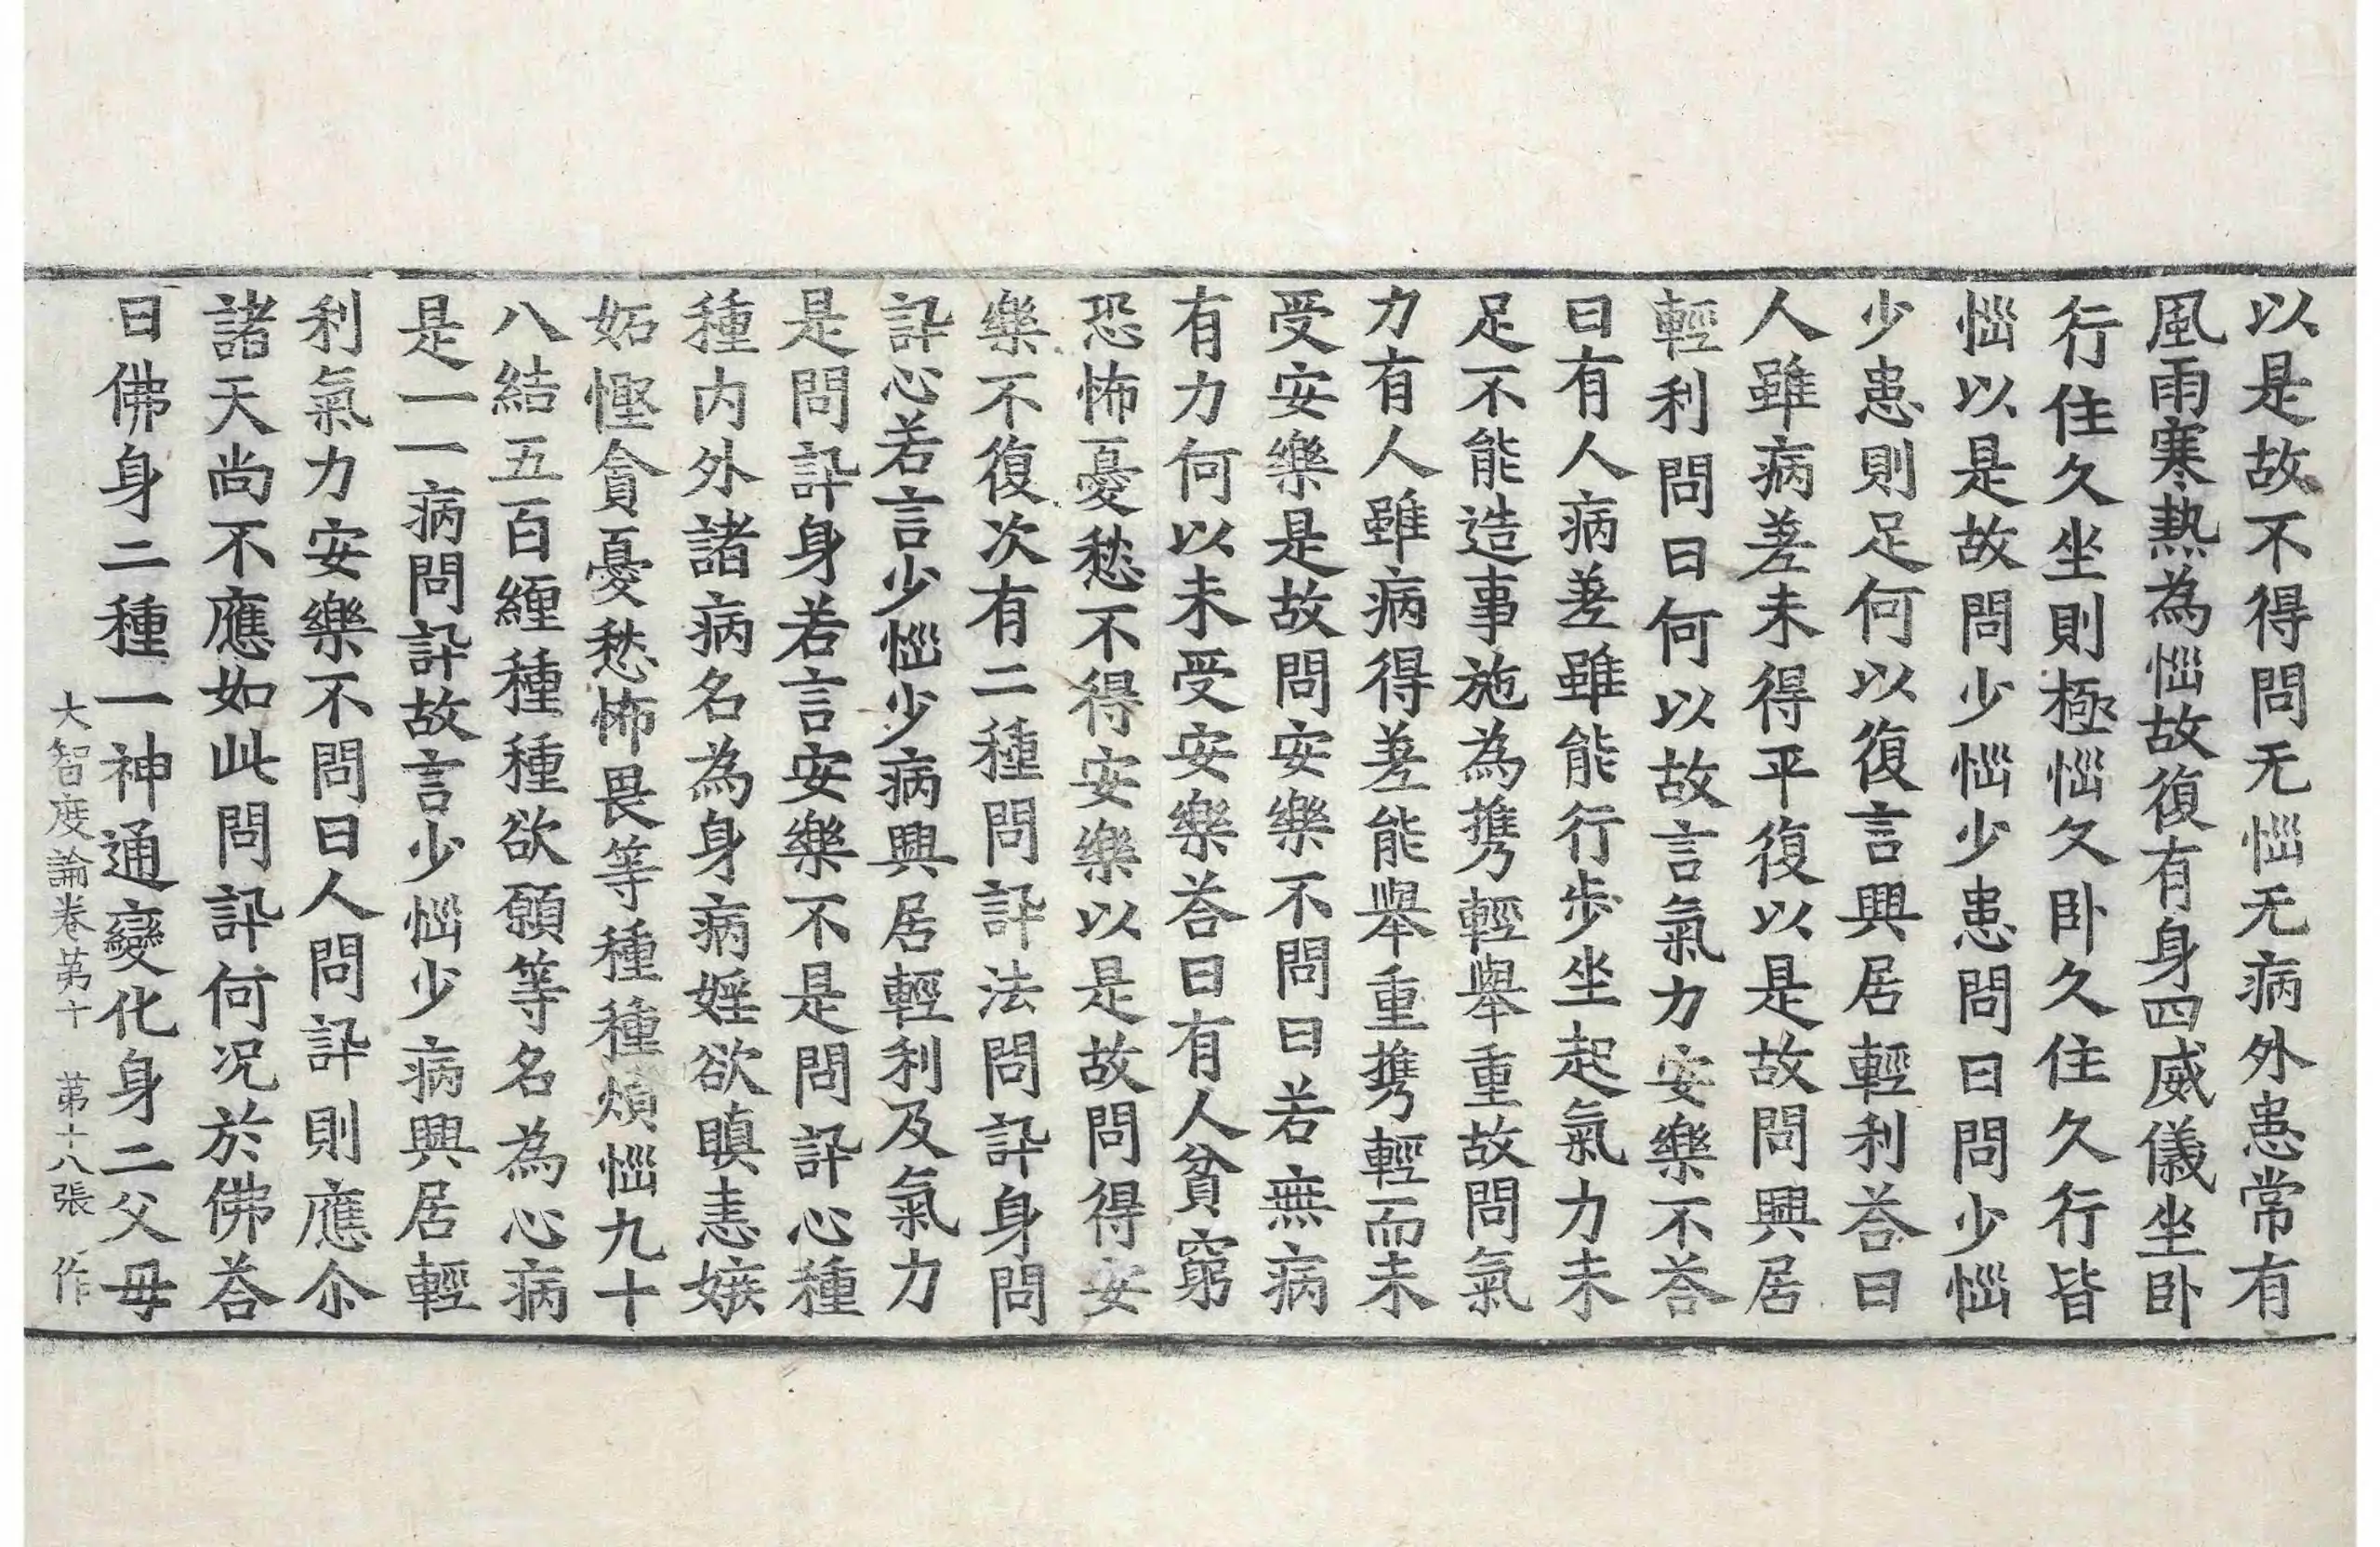 以是故不得問无惱无病外患常有
風雨寒熱為惱故復有身四威儀坐卧
行住久坐則極惱久卧久住久行皆
惱以是故問少惱少患問曰問少惱
少患則足何以復言興居輕利荅曰
人雖病差未得平復以是故問興居
輕利問曰何以故言氣力安樂不荅
曰有人病差雖能行步坐起氣力未
足不能造事施為擕輕舉重故問氣
力有人雖病得差能舉重擕輕而未
受安樂是故問安樂不問曰若無病
有力何以未受安樂荅曰有人貧窮
恐怖憂愁不得安樂以是故問得安
樂不復次有二種問訊法問訊身問
訊心若言少惱少病興居輕利及氣力
是問訊身若言安樂不是問訊心種
種内外諸病名為身病婬欲瞋恚嫉
妬慳貪憂愁怖畏等種種煩惱九十
八結五百纏種種欲願等名為心病
是一一病問訊故言少惱少病興居輕
利氣力安樂不問曰人問訊則應尒
諸天尚不應如此問訊何况於佛荅
曰佛身二種一神通變化身二父母
大智度論卷第十 第十八張 作